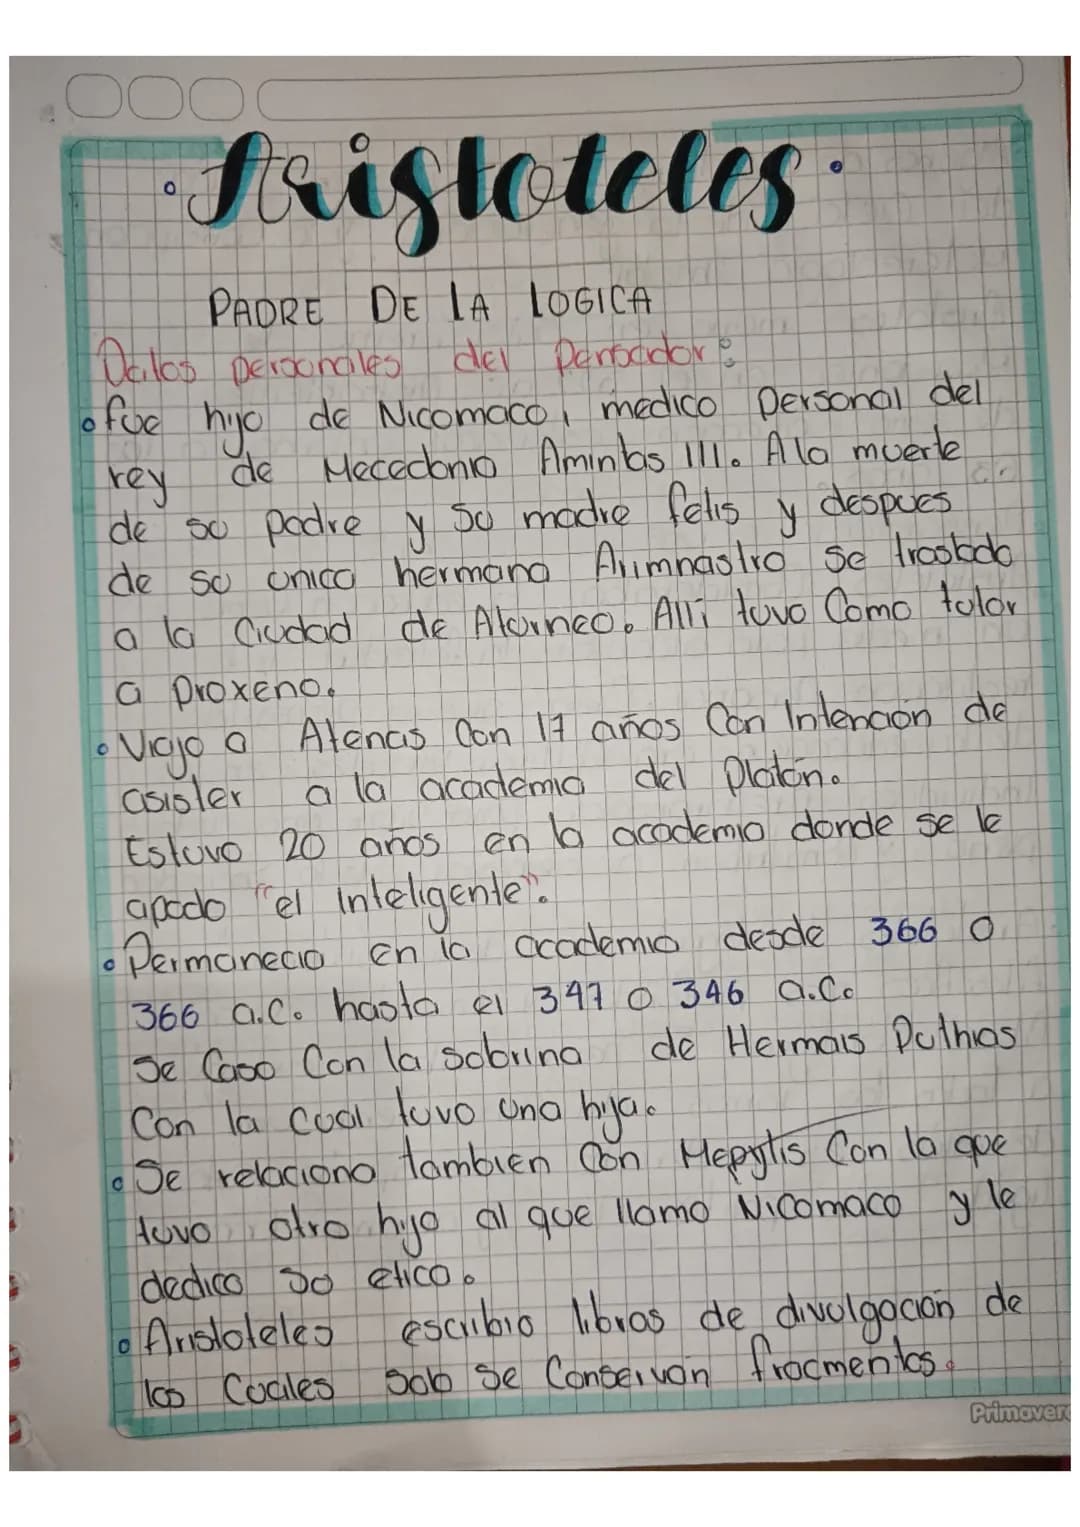 Aristoteles
PADRE DE LA LOGICA
Datos personales del Pensador:
fue hijo de Nicomaco, medico personal del
rey de Macedonia Amintas III. A la muerte
de su padre y su madre felis y despues
de su unico hermano Arimnastro se traslado
a la Ciudad de Atarneo. Allí tuvo Como tutor
a proxeno.
Viajo a Atenas Con 17 años Con Intencion de
asister a la academia del Platón.
Estuvo 20 años en la academia donde se le
apodo "el Inteligente".
Permanecio en la academia desde 366 o
366 a.C. hasta el 347 o 346 a.C.
Se Caso Con la sobrina de Hermais Pythias
Con la Cual tuvo una hija.
Se relaciono tambien Con Hepytis Con la que
tuvo otro hijo al que llamo Nicomaco y le
dedico su etica.
Aristoteles escribio libros de divulgación de
los Cuales solo se Conservan fracmentos.
Primavera